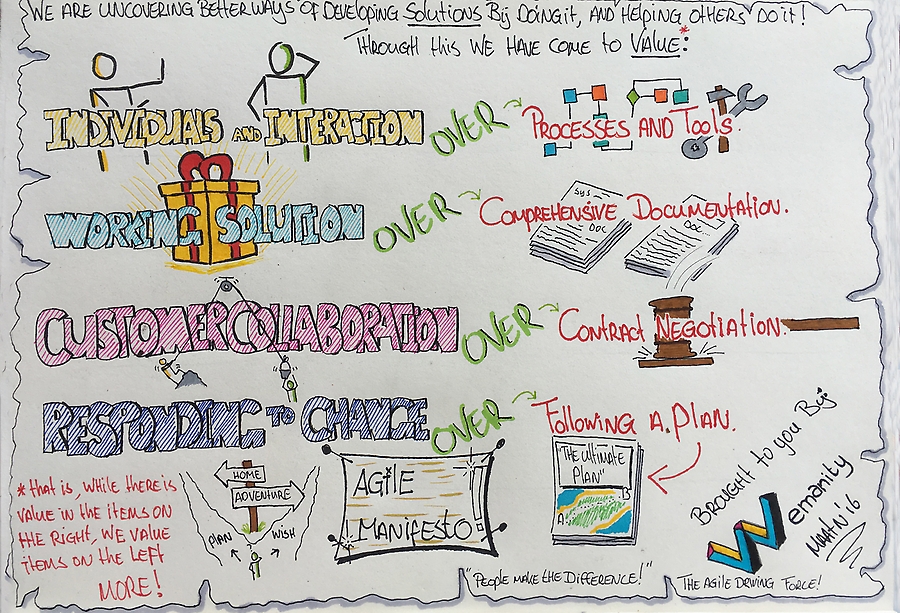 WE ARE UNCOVERING BETTER WAYS OF DEVELOPING SOLUTIONS BY DOING IT, AND HELPING OTHERS DO IT!
THROUGH THIS WE HAVE COME TO VALUE*:
INDIVIDUALS AND INTERACTION OVER PROCESSES AND TOOLS.
WORKING SOLUTION OVER COMPREHENSIVE DOCUMENTATION.
SYS
DOC
DOC...
CUSTOMER COLLABORATION OVER CONTRACT NEGOTIATION.
RESPONDING TO CHANGE OVER FOLLOWING A PLAN.
* that is, while there is
value in the items on
the right, we value
items on the left
MORE!
HOME
ADVENTURE
PLAN
WISH
AGILE
MANIFESTO
"THE ULTIMATE
PLAN"
A
B
"PEOPLE MAKE THE DIFFERENCE!"
BROUGHT to you By:
Wemanity
'16
THE AGILE DRIVING FORCE!